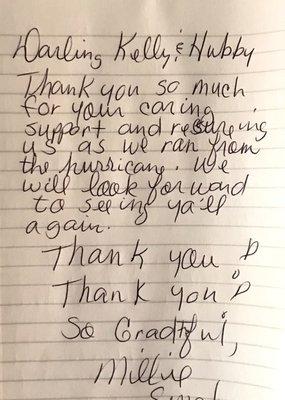 Darling Kelly & Hubby
Thank you so much
for your caring
support and rescueing
us as we ran from
the hurricane. We
will look forward
to seeing ya'll
again.
Thank you!
Thank you!
So Gradtful,
Millie